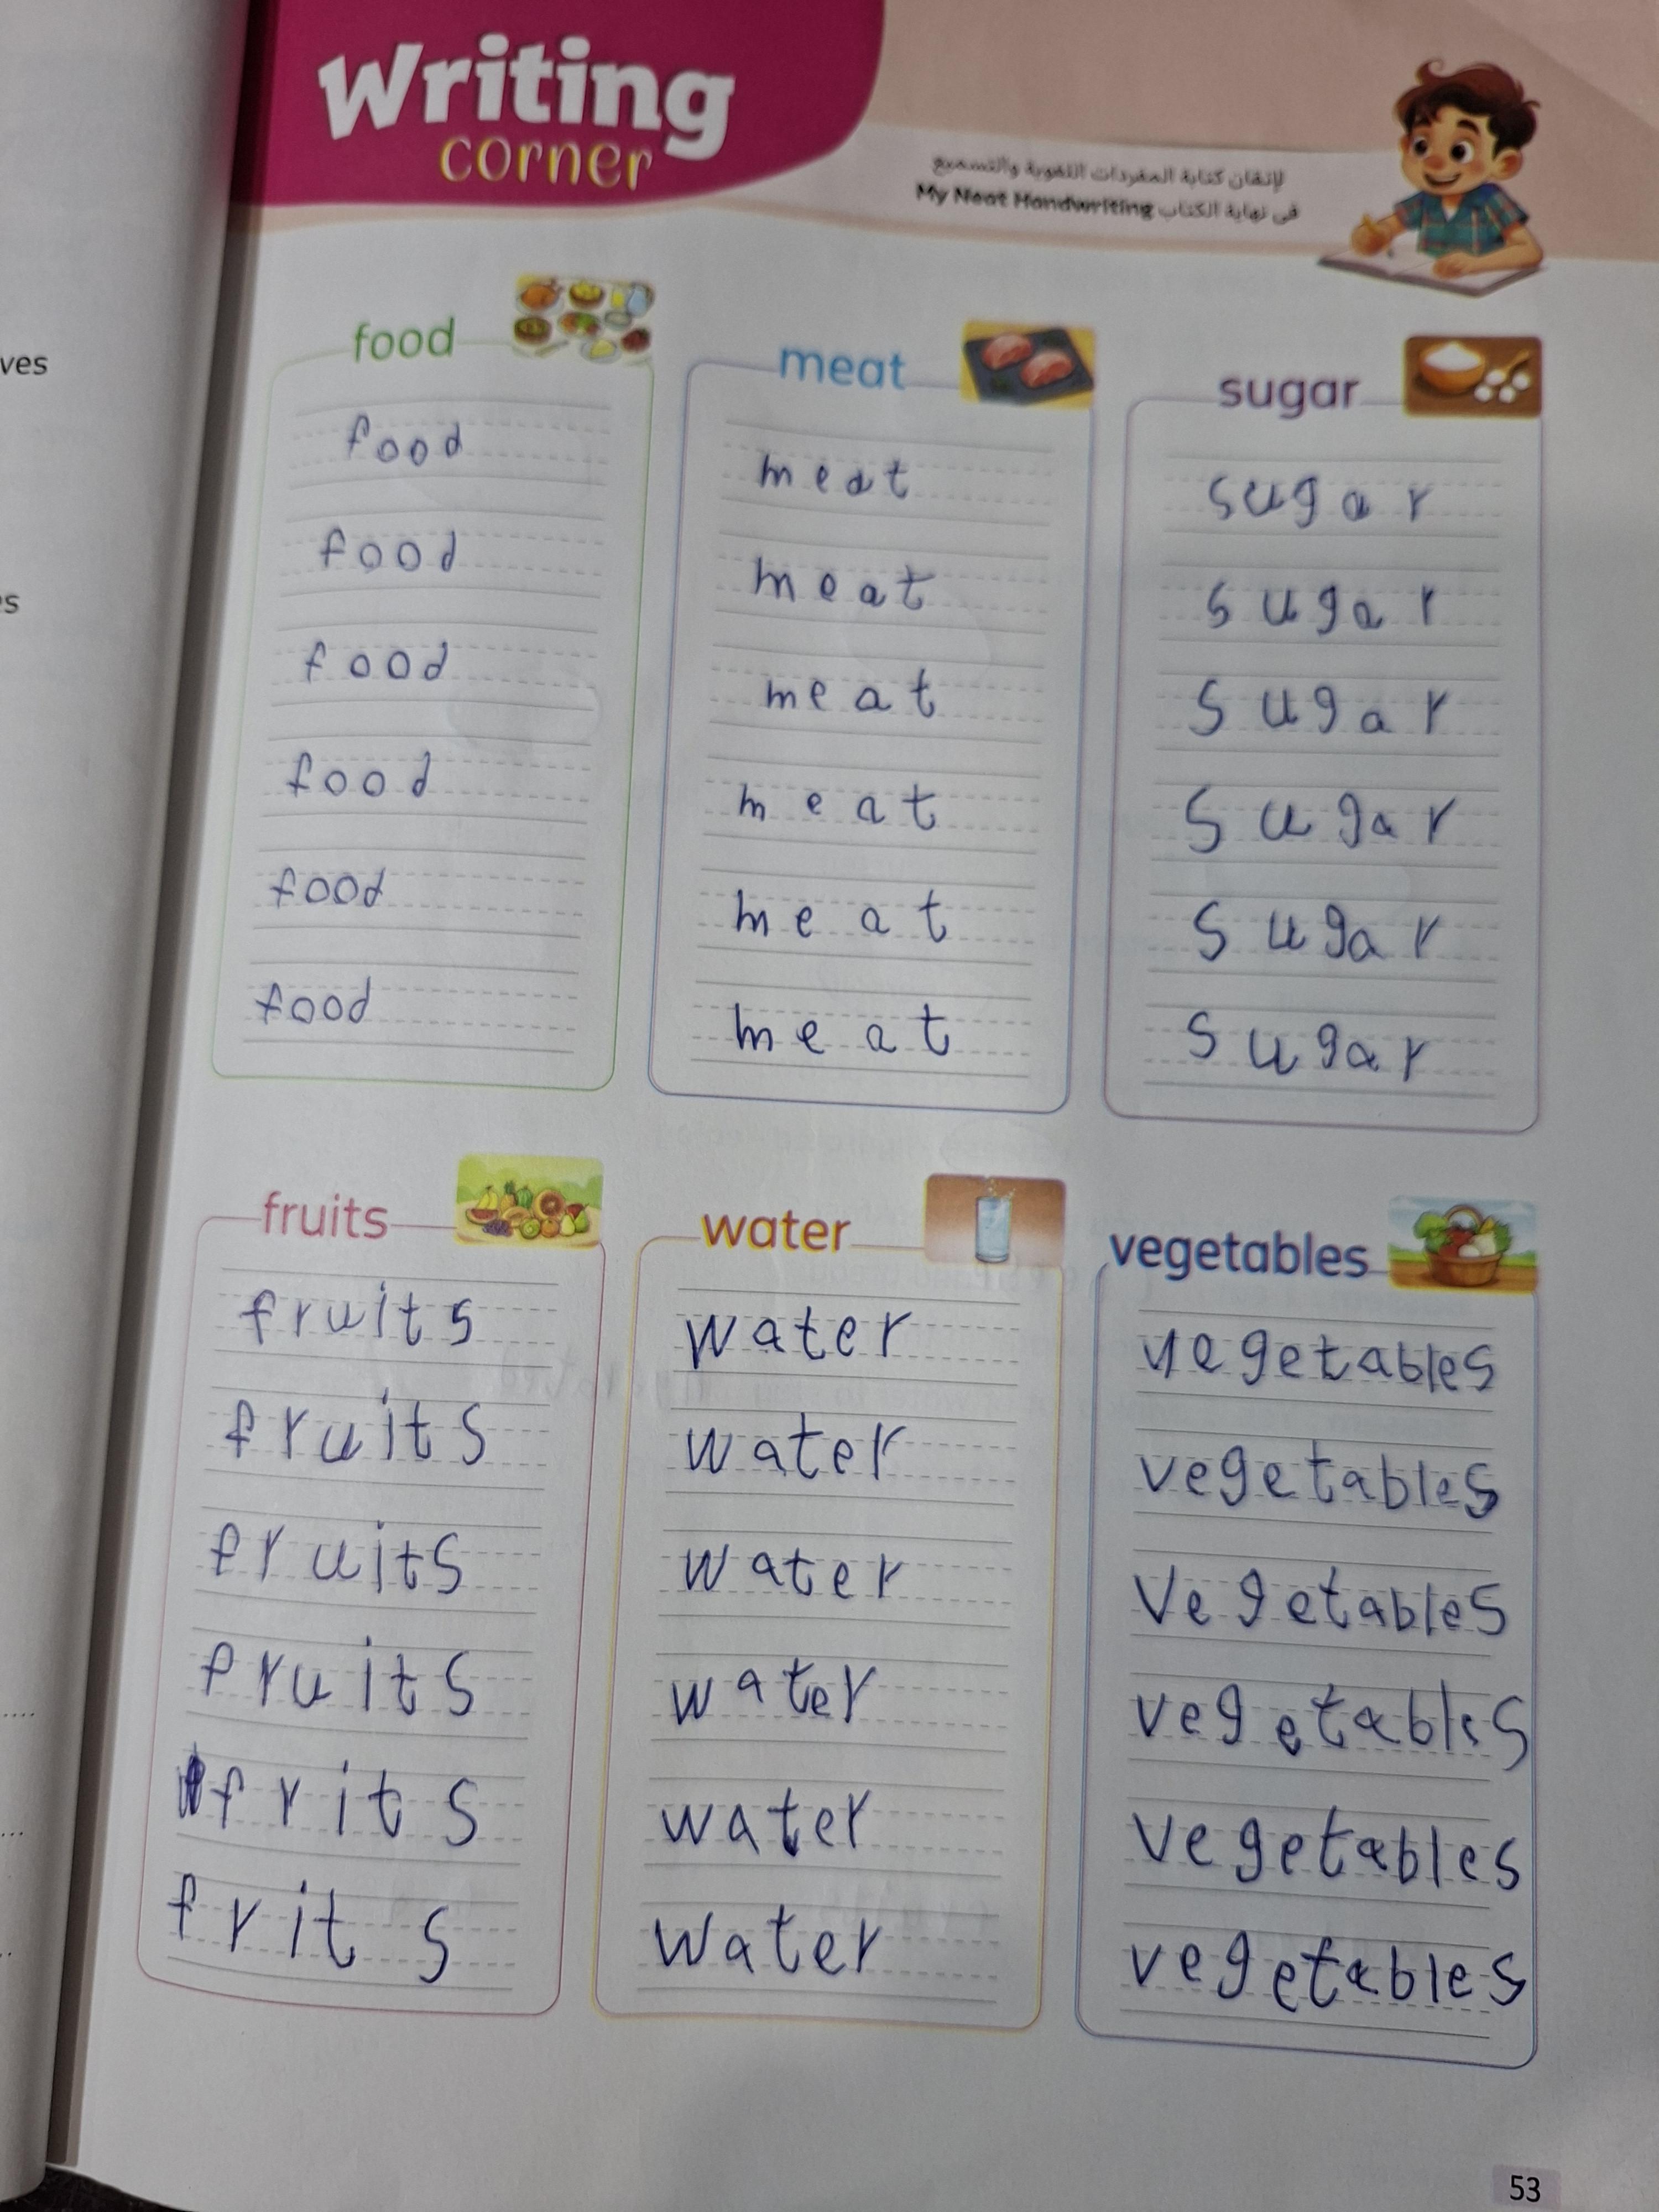 Writing
corner
لإتقان كتابة المفردات اللغوية والتسميع
في نهاية الكتاب My Neat Handwriting
ves
es
food
food
food
food
food
food
food
meat
meat
meat
meat
meat
meat
meat
sugar
sugar
sugar
sugar
sugar
sugar
sugar
fruits
fruits
fruits
fruits
fruits
frits
frits
water
water
water
water
water
water
water
vegetables
vegetables
vegetables
vegetables
vegetables
vegetables
vegetables
53